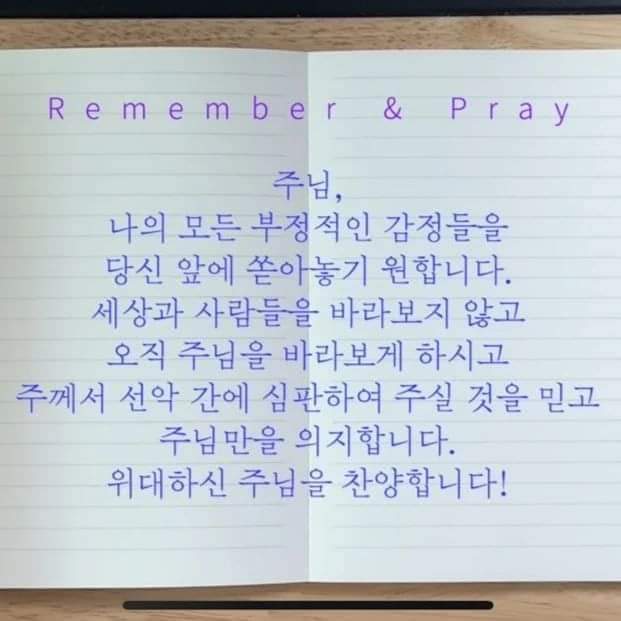 Remember & Pray
주님,
나의 모든 부정적인 감정들을
당신 앞에 쏟아놓기 원합니다.
세상과 사람들을 바라보지 않고
오직 주님을 바라보게 하시고
주께서 선악 간에 심판하여 주실 것을 믿고
주님만을 의지합니다.
위대하신 주님을 찬양합니다!